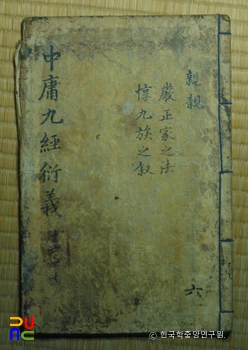 親親
嚴正家之法
惇九族之叙
中庸九經衍義
六
PUAC
©한국학중앙연구원.